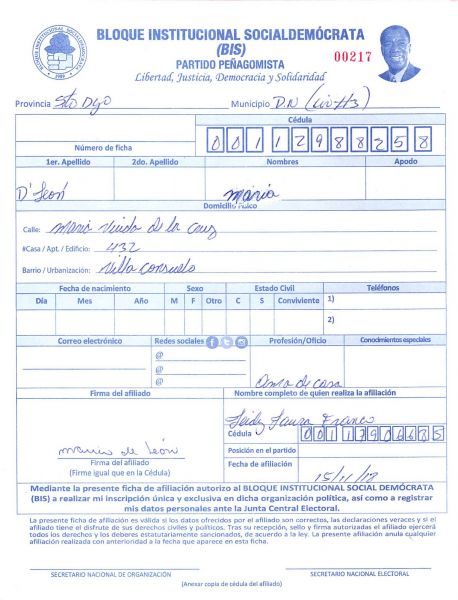 BLOQUE INSTITUCIONAL SOCIALDEMÓCRATA
(BIS)
00217
PARTIDO PEÑAGOMISTA
Libertad, Justicia, Democracia y Solidaridad
BLOQUE INSTITUCIONAL SOCIALDEMOCRATA
1989
Provincia Sto Dgo Municipio D.N
Cédula
Número de ficha 00112988258
1er. Apellido 2do. Apellido Nombres Apodo
D' León maria
Domicilio Físico
Calle: Maria Viuda de la Cruz
#Casa / Apt. / Edificio: 432
Barrio / Urbanización: Villa Consuelo
Fecha de nacimiento Sexo Estado Civil Teléfonos
Día Mes Año M F Otro C S Conviviente 1)
2)
Correo electrónico Redes sociales Profesión/Oficio Conocimientos especiales
@
@
@ Ama de casa
Firma del afiliado Nombre completo de quien realiza la afiliación
Leidy Laura Franco
Cédula 00117906685
maria de león
Posición en el partido
Firma del afiliado
(Firma igual que en la Cédula)
Fecha de afiliación 15/11/18
Mediante la presente ficha de afiliación autorizo al BLOQUE INSTITUCIONAL SOCIAL DEMÓCRATA
(BIS) a realizar mi inscripción única y exclusiva en dicha organización política, así como a registrar
mis datos personales ante la Junta Central Electoral.
La presente ficha de afiliación es válida si los datos ofrecidos por el afiliado son correctos, las declaraciones veraces y si el
afiliado tiene el disfrute de sus derechos civiles y políticos. Tras su recepción, sello y firma autorizadas el afiliado ejercerá
todos los derechos y los deberes estatutariamente sancionados, de acuerdo a la ley. La presente afiliación anula cualquier
afiliación realizada con anterioridad a la fecha que aparece en esta ficha.
SECRETARIO NACIONAL DE ORGANIZACIÓN SECRETARIO NACIONAL ELECTORAL
(Anexar copia de cédula del afiliado)